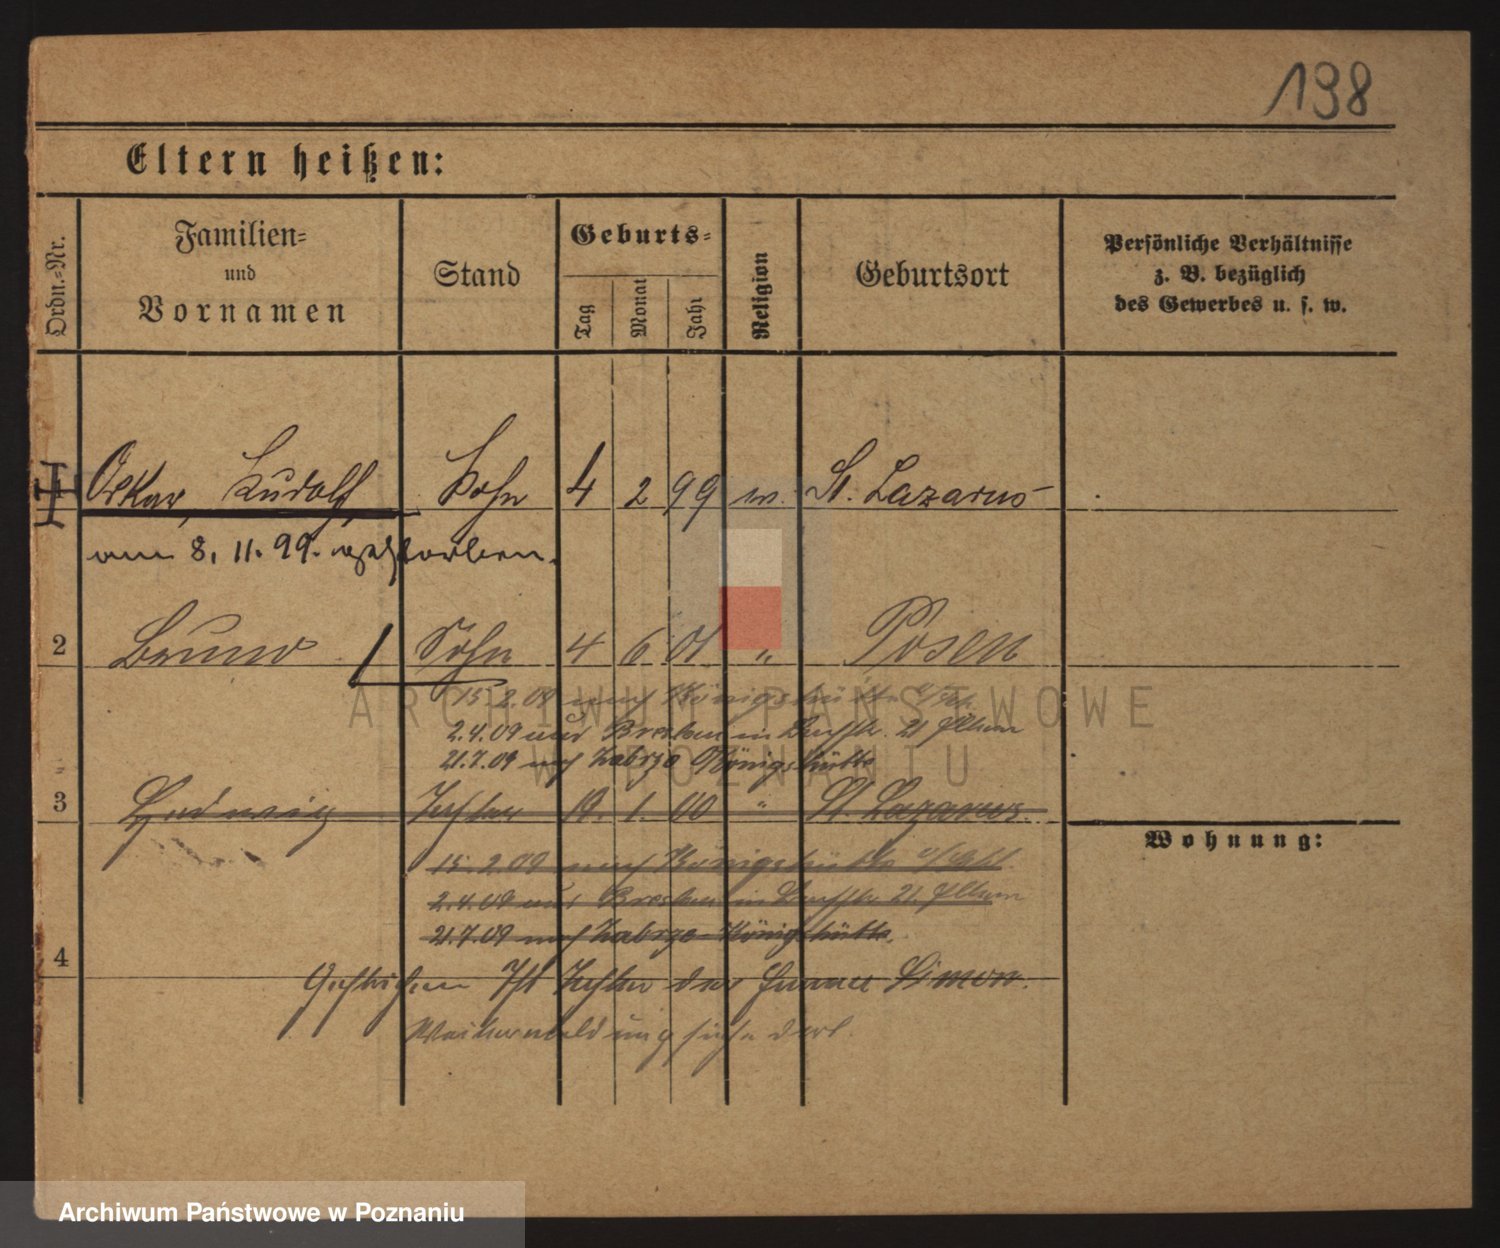 198
Eltern heißen:
Ordn.-Nr.
Familien- und Vornamen
Stand
Geburts-
Tag
Monat
Jahr
Religion
Geburtsort
Persönliche Verhältnisse
z. B. bezüglich
des Gewerbes u. s. w.
1 Oskar, Rudolf, Sohn 4 2 99 St. Lazarus
am 8. 11. 99. gestorben.
2 Bruno Sohn 4 6 01 " Posen
15.2.09 nach Königshütte
2.4.09 aus Breslau 21
21.7.09 nach Zabrze Königshütte
3 Hedwig Tochter 19. 1. 00 " St. Lazarus.
Wohnung:
15.2.09 nach Königshütte
2.4.09 aus Breslau 21.
21.7.09 nach Zabrze Königshütte.
4
Gestrichen Ist Tochter der Simon.
siehe dort.
ARCHIWUM PAŃSTWOWE
W POZNANIU
Archiwum Państwowe w Poznaniu